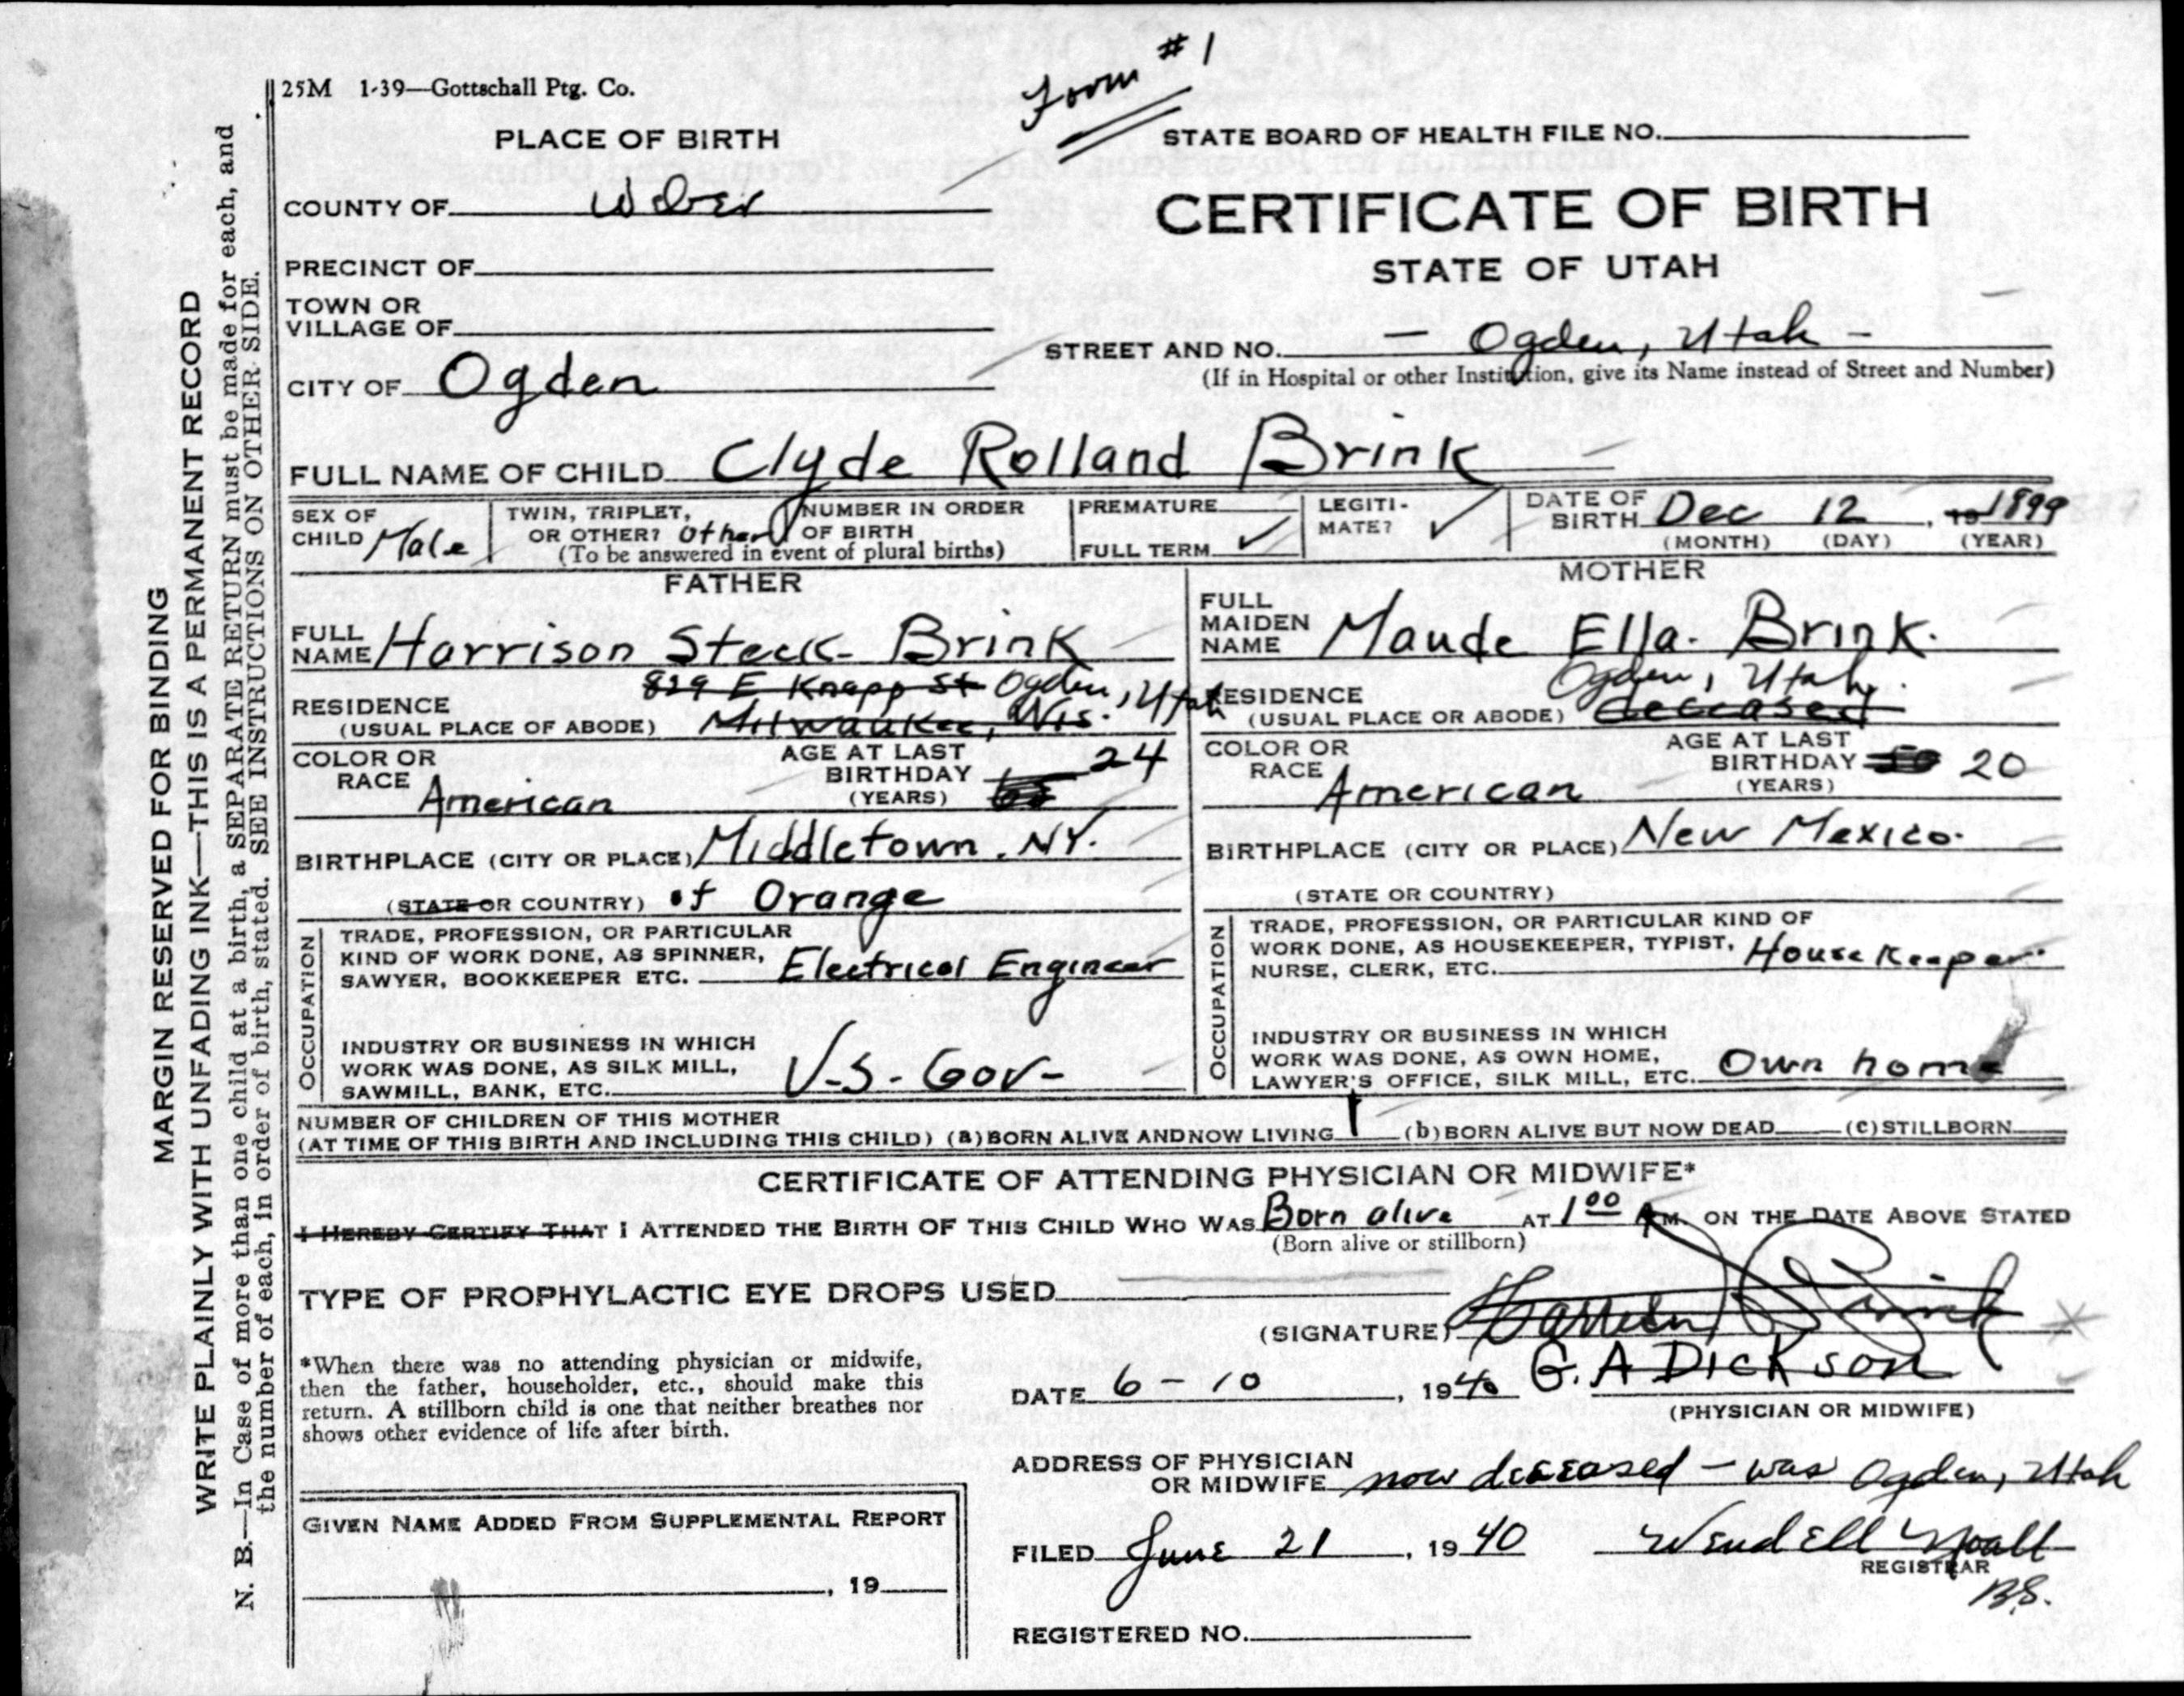 Form #1
25M 1-39—Gottschall Ptg. Co.
PLACE OF BIRTH
STATE BOARD OF HEALTH FILE NO.
COUNTY OF Weber
CERTIFICATE OF BIRTH
STATE OF UTAH
PRECINCT OF
TOWN OR
VILLAGE OF
STREET AND NO. — Ogden, Utah —
(If in Hospital or other Institution, give its Name instead of Street and Number)
CITY OF Ogden
FULL NAME OF CHILD Clyde Rolland Brink
SEX OF
CHILD Male
TWIN, TRIPLET,
OR OTHER? Other
NUMBER IN ORDER
OF BIRTH
(To be answered in event of plural births)
PREMATURE
FULL TERM ✓
LEGITI-
MATE? ✓
DATE OF
BIRTH Dec 12, 19 1899
(MONTH) (DAY) (YEAR)
FATHER
FULL
NAME Harrison Steck Brink
829 E Knapp St Ogden, Utah
RESIDENCE
(USUAL PLACE OF ABODE) Milwaukee, Wis.
COLOR OR
RACE American
AGE AT LAST
BIRTHDAY 24
(YEARS)
BIRTHPLACE (CITY OR PLACE) Middletown. NY.
(STATE OR COUNTRY) of Orange
OCCUPATION
TRADE, PROFESSION, OR PARTICULAR
KIND OF WORK DONE, AS SPINNER,
SAWYER, BOOKKEEPER ETC. Electrical Engineer
INDUSTRY OR BUSINESS IN WHICH
WORK WAS DONE, AS SILK MILL,
SAWMILL, BANK, ETC. U-S-Gov-
MOTHER
FULL
MAIDEN
NAME Maude Ella. Brink.
Ogden, Utah.
RESIDENCE
(USUAL PLACE OR ABODE) deceased
COLOR OR
RACE American
AGE AT LAST
BIRTHDAY 20
(YEARS)
BIRTHPLACE (CITY OR PLACE) New Mexico.
(STATE OR COUNTRY)
OCCUPATION
TRADE, PROFESSION, OR PARTICULAR KIND OF
WORK DONE, AS HOUSEKEEPER, TYPIST,
NURSE, CLERK, ETC. House Keeper
INDUSTRY OR BUSINESS IN WHICH
WORK WAS DONE, AS OWN HOME,
LAWYER'S OFFICE, SILK MILL, ETC. Own home
NUMBER OF CHILDREN OF THIS MOTHER
(AT TIME OF THIS BIRTH AND INCLUDING THIS CHILD) (a) BORN ALIVE AND NOW LIVING 1 (b) BORN ALIVE BUT NOW DEAD (c) STILLBORN
CERTIFICATE OF ATTENDING PHYSICIAN OR MIDWIFE*
I HEREBY CERTIFY THAT I ATTENDED THE BIRTH OF THIS CHILD WHO WAS Born alive AT 1 00 A M. ON THE DATE ABOVE STATED
(Born alive or stillborn)
TYPE OF PROPHYLACTIC EYE DROPS USED
(SIGNATURE)
*When there was no attending physician or midwife,
then the father, householder, etc., should make this
return. A stillborn child is one that neither breathes nor
shows other evidence of life after birth.
DATE 6-10, 1940 G. A DICKSON
(PHYSICIAN OR MIDWIFE)
ADDRESS OF PHYSICIAN
OR MIDWIFE now deceased — was Ogden, Utah
GIVEN NAME ADDED FROM SUPPLEMENTAL REPORT
, 19
FILED June 21, 1940 Wendell Noall
REGISTRAR
B.S.
REGISTERED NO.
MARGIN RESERVED FOR BINDING
WRITE PLAINLY WITH UNFADING INK—THIS IS A PERMANENT RECORD
N. B.—In Case of more than one child at a birth, a SEPARATE RETURN must be made for each, and
the number of each, in order of birth, stated. SEE INSTRUCTIONS ON OTHER SIDE.